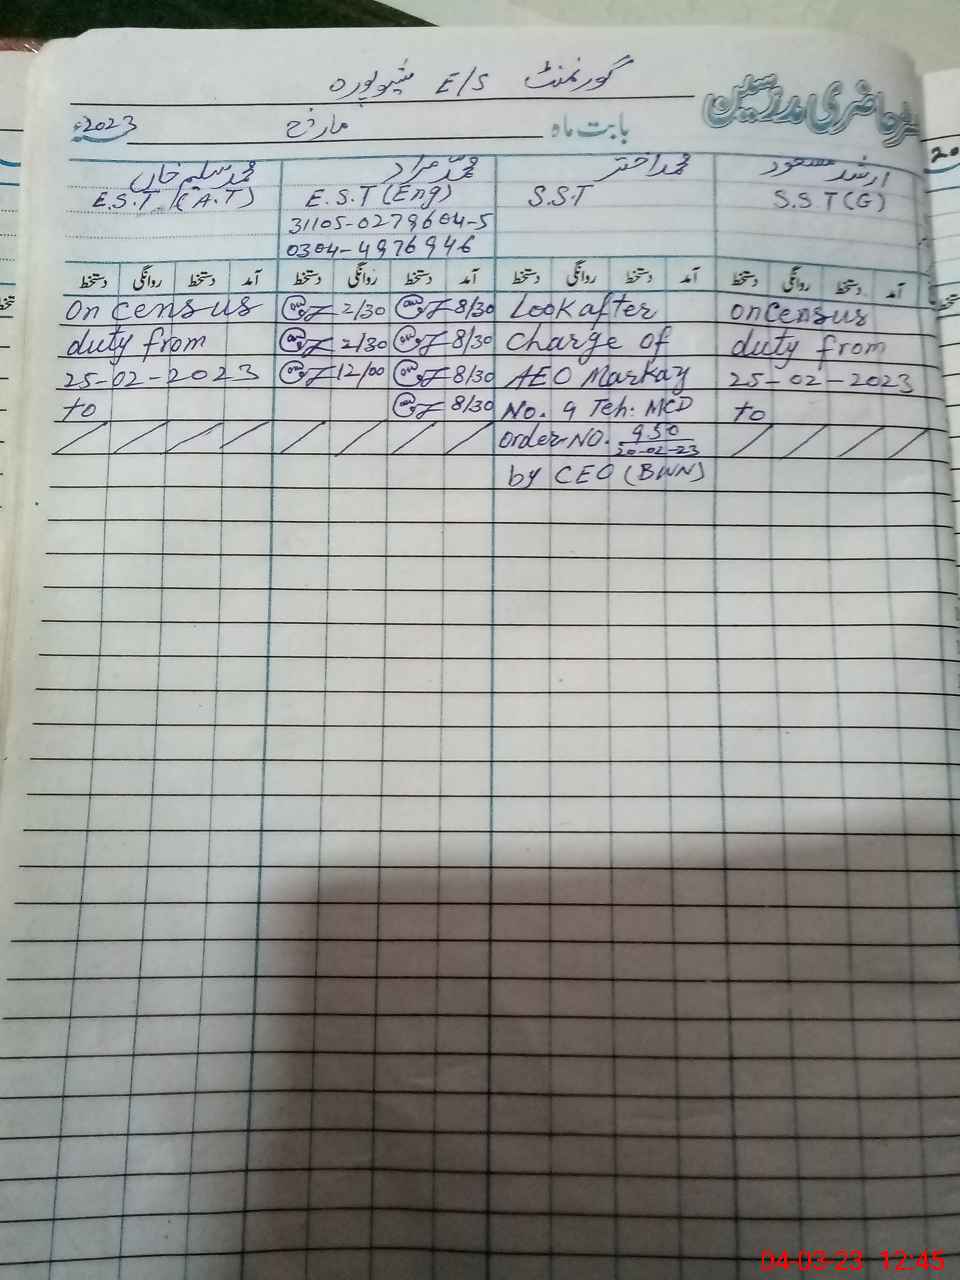 گورنمنٹ E/S شپولپورہ
رجسٹر حاضری مدرسین
بابت ماہ مارچ 2023ء
ارشد مسعود محمد اختر محمد مراد محمد سلیم خاں
S.S T(G) S.S.T E.S.T(Eng) E.S.T (A.T)
31105-0279604-5
0304-4976946
آمد دستخط روانگی دستخط آمد دستخط روانگی دستخط آمد دستخط روانگی دستخط آمد دستخط روانگی دستخط
on census 2/30 8/30 Look after on census
duty from 2/30 8/30 charge of duty from
25-02-2023 12/00 8/30 AEO Markaz 25-02-2023
to 8/30 No. 9 Teh: MCD to
order NO. 950
20-02-23
by CEO (BWN)
20
04-03-23 12:45